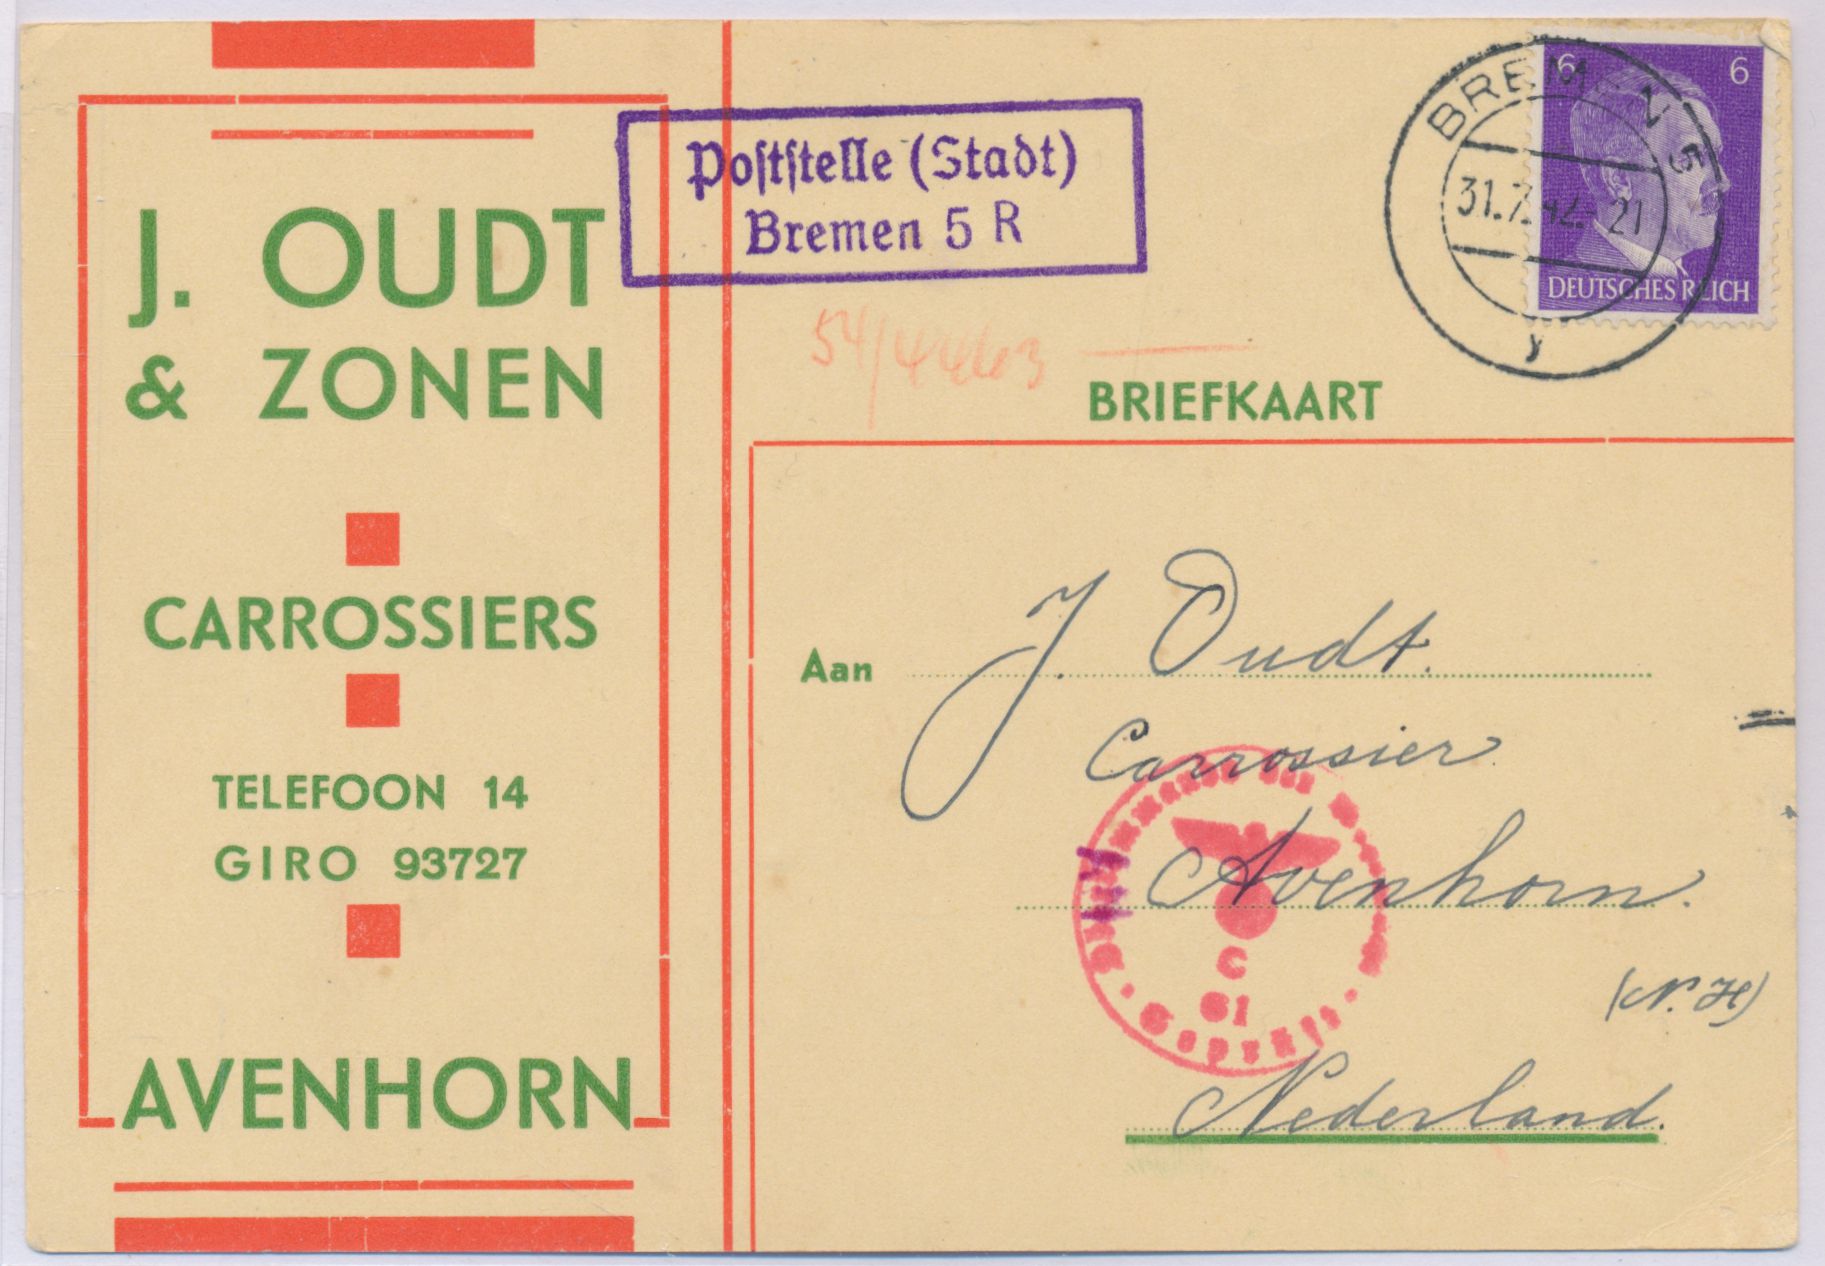 J. OUDT
& ZONEN
CARROSSIERS
TELEFOON 14
GIRO 93727
AVENHORN
Poststelle (Stadt)
Bremen 5 R
6 6
DEUTSCHES REICH
BREMEN 5
31.7.42.-21
y
54/4463
BRIEFKAART
Aan J. Oudt.
Carrossier
Avenhorn.
(N.H)
Nederland.
C
61